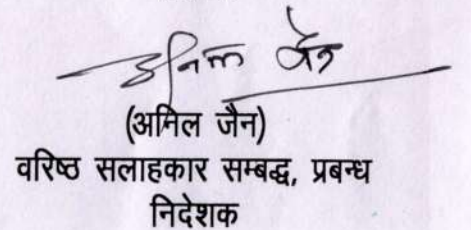 अनिल जैन
(अमिल जैन)
वरिष्ठ सलाहकार सम्बद्ध, प्रबन्ध
निदेशक